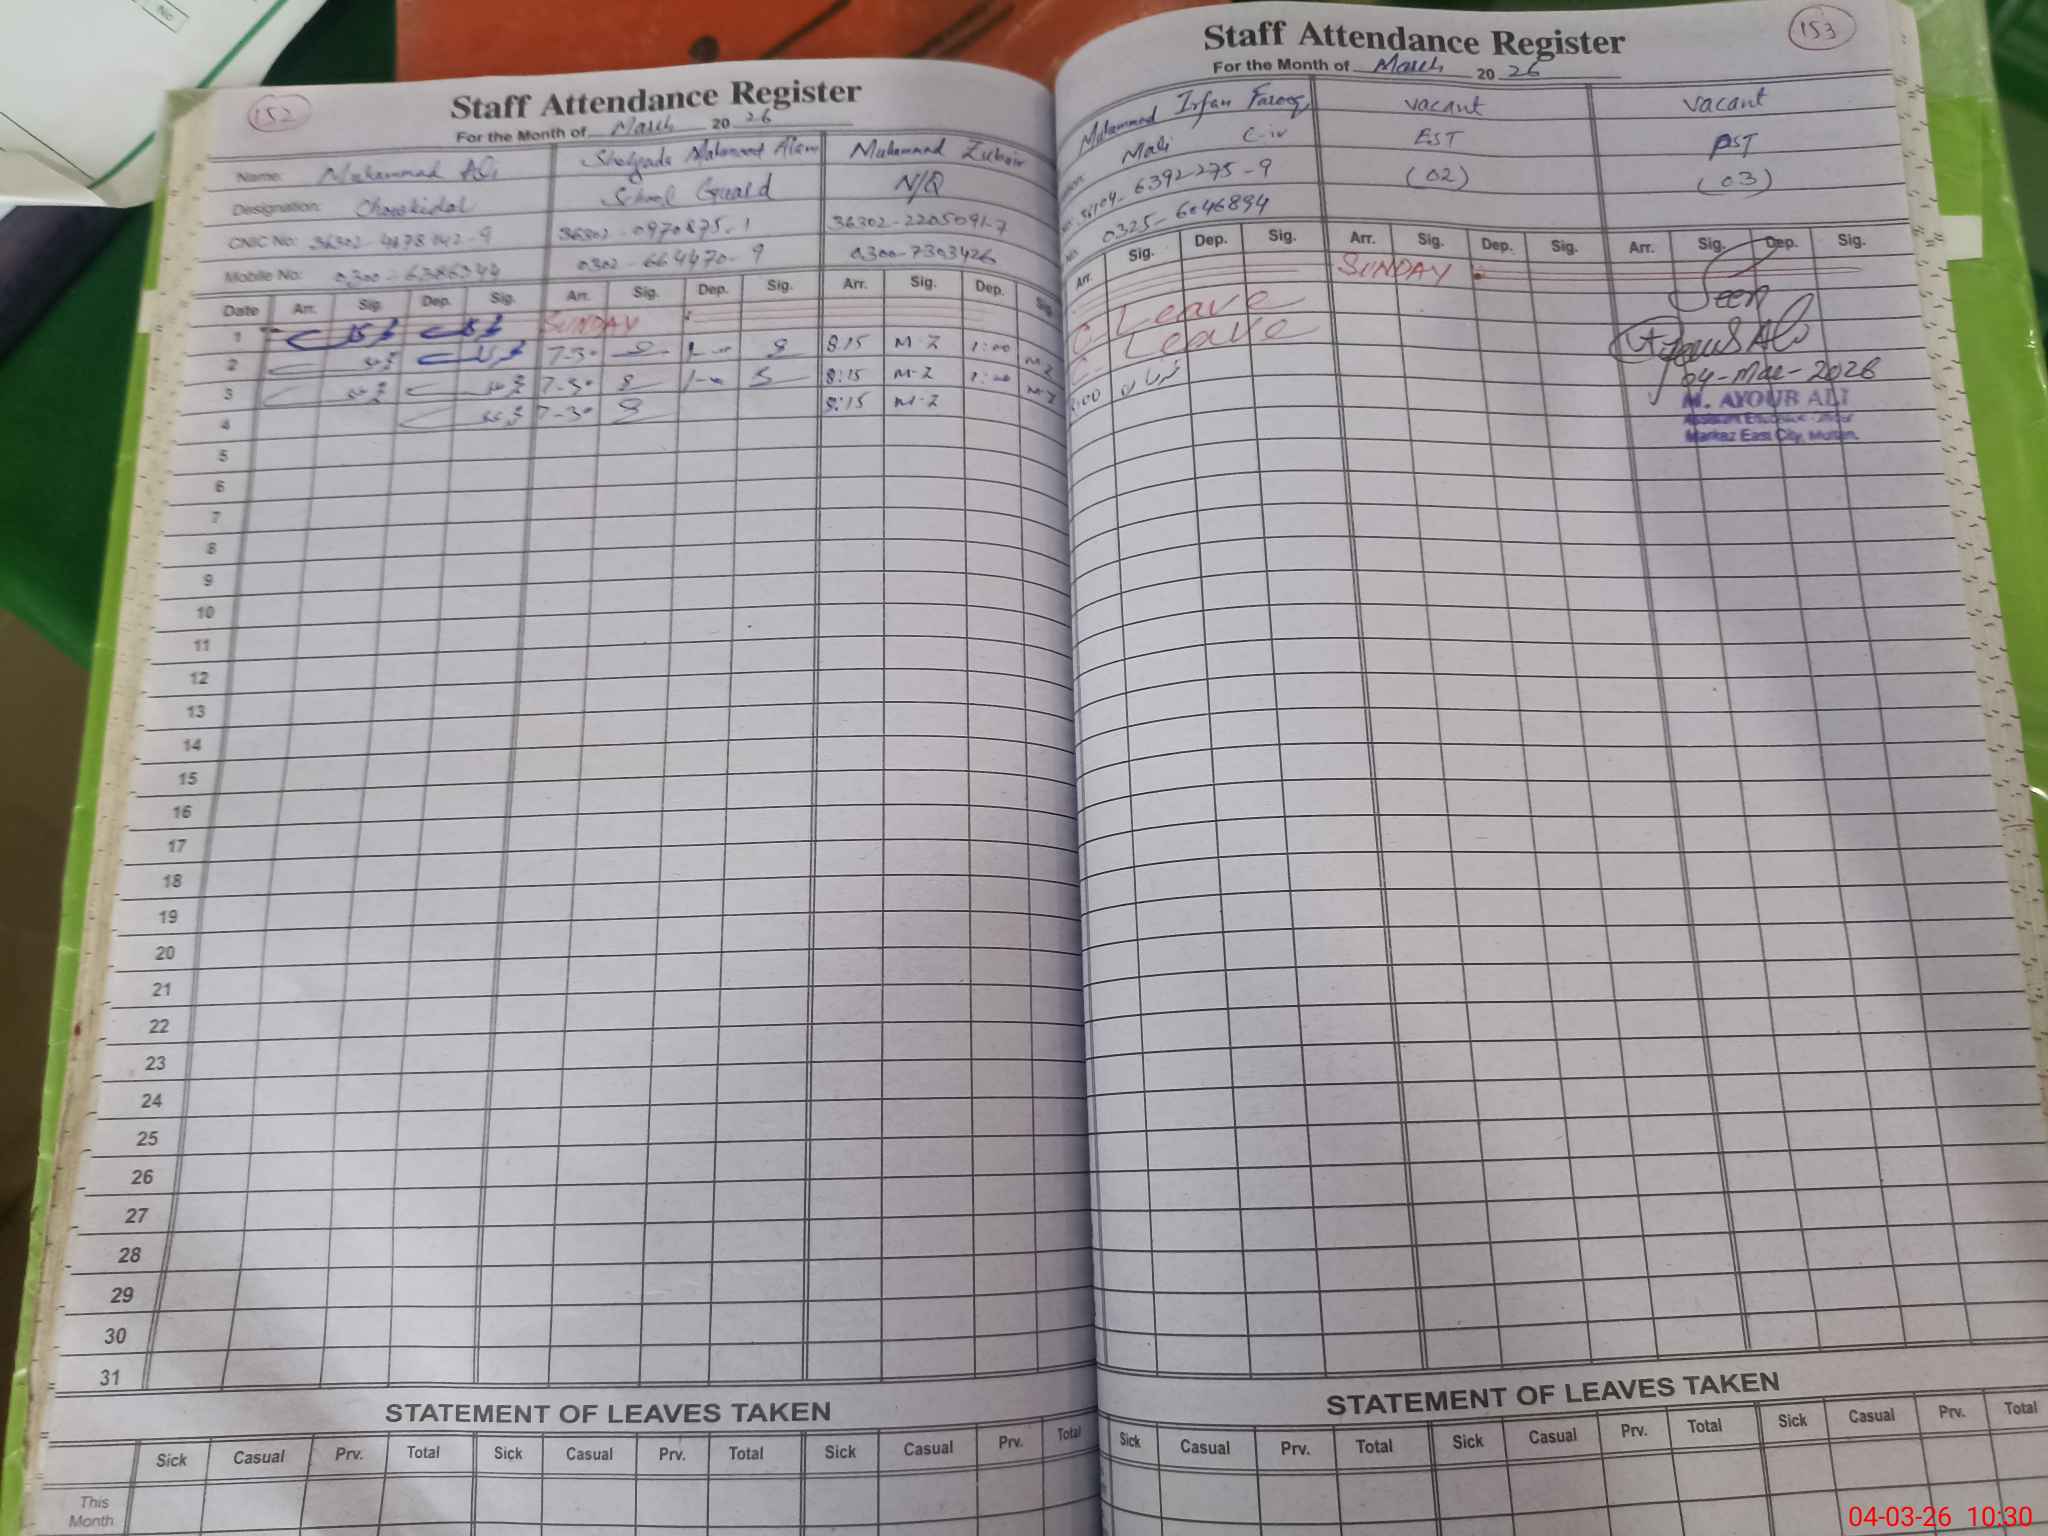 No
152
Staff Attendance Register
For the Month of March 20 26
Name: Muhammad Ali
Designation: Chowkidar
CNIC No: 36302-4678142-9
Mobile No: 0300-6386344
Shehzada Mahmood Alam
School Guard
36302-0970875-1
0302-664470-9
Muhammad Zubair
N/Q
36302-2205091-7
0300-7303426
Date Arr. Sig. Dep. Sig. Arr. Sig. Dep. Sig. Arr. Sig. Dep. Sig.
1 SUNDAY
2 7-30 8:15 M-Z 1:00 M-Z
3 7-30 8:15 M-Z 1:00 M-Z
4 7-30 8:15 M-Z
5
6
7
8
9
10
11
12
13
14
15
16
17
18
19
20
21
22
23
24
25
26
27
28
29
30
31
STATEMENT OF LEAVES TAKEN
Sick Casual Prv. Total Sick Casual Prv. Total Sick Casual Prv. Total
This
Month
153
Staff Attendance Register
For the Month of March 20 26
Muhammad Irfan Farooq
Mali C-iv
6392275-9
0325-6046894
vacant
EST
(02)
vacant
PST
(03)
Arr. Sig. Dep. Sig. Arr. Sig. Dep. Sig. Arr. Sig. Dep. Sig.
SUNDAY
C. Leave
C- Leave
Seen
04-Mar-2026
M. AYOUB ALI
Assistant Education Officer
Markaz East City, Multan.
STATEMENT OF LEAVES TAKEN
Sick Casual Prv. Total Sick Casual Prv. Total Sick Casual Prv. Total
04-03-26 10:30